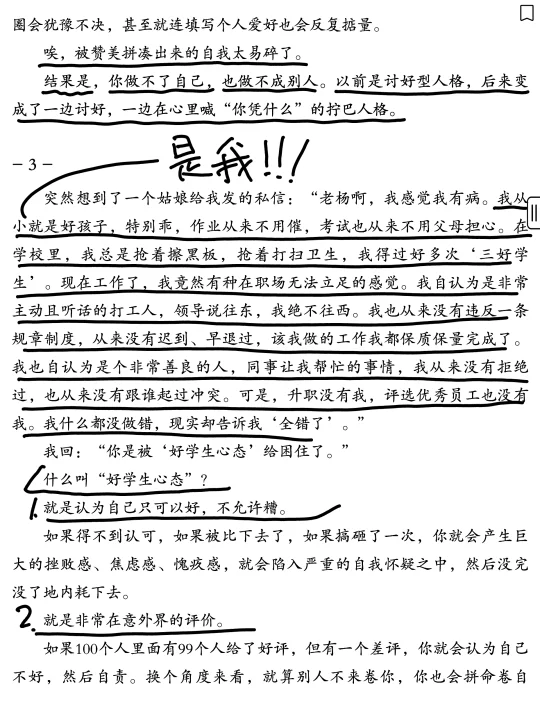 圈会犹豫不决，甚至就连填写个人爱好也会反复掂量。
唉，被赞美拼凑出来的自我太易碎了。
结果是，你做不了自己，也做不成别人。以前是讨好型人格，后来变
成了一边讨好，一边在心里喊“你凭什么”的拧巴人格。
是我!!!
– 3 –
突然想到了一个姑娘给我发的私信：“老杨啊，我感觉我有病。我从
小就是好孩子，特别乖，作业从来不用催，考试也从来不用父母担心。在
学校里，我总是抢着擦黑板，抢着打扫卫生，我得过好多次‘三好学
生’。现在工作了，我竟然有种在职场无法立足的感觉。我自认为是非常
主动且听话的打工人，领导说往东，我绝不往西。我也从来没有违反一条
规章制度，从来没有迟到、早退过，该我做的工作我都保质保量完成了。
我也自认为是个非常善良的人，同事让我帮忙的事情，我从来没有拒绝
过，也从来没有跟谁起过冲突。可是，升职没有我，评选优秀员工也没有
我。我什么都没做错，现实却告诉我‘全错了’。”
我回：“你是被‘好学生心态’给困住了。”
什么叫“好学生心态”？
1. 就是认为自己只可以好，不允许糟。
如果得不到认可，如果被比下去了，如果搞砸了一次，你就会产生巨
大的挫败感、焦虑感、愧疚感，就会陷入严重的自我怀疑之中，然后没完
没了地内耗下去。
2. 就是非常在意外界的评价。
如果100个人里面有99个人给了好评，但有一个差评，你就会认为自己
不好，然后自责。换个角度来看，就算别人不来卷你，你也会拼命卷自